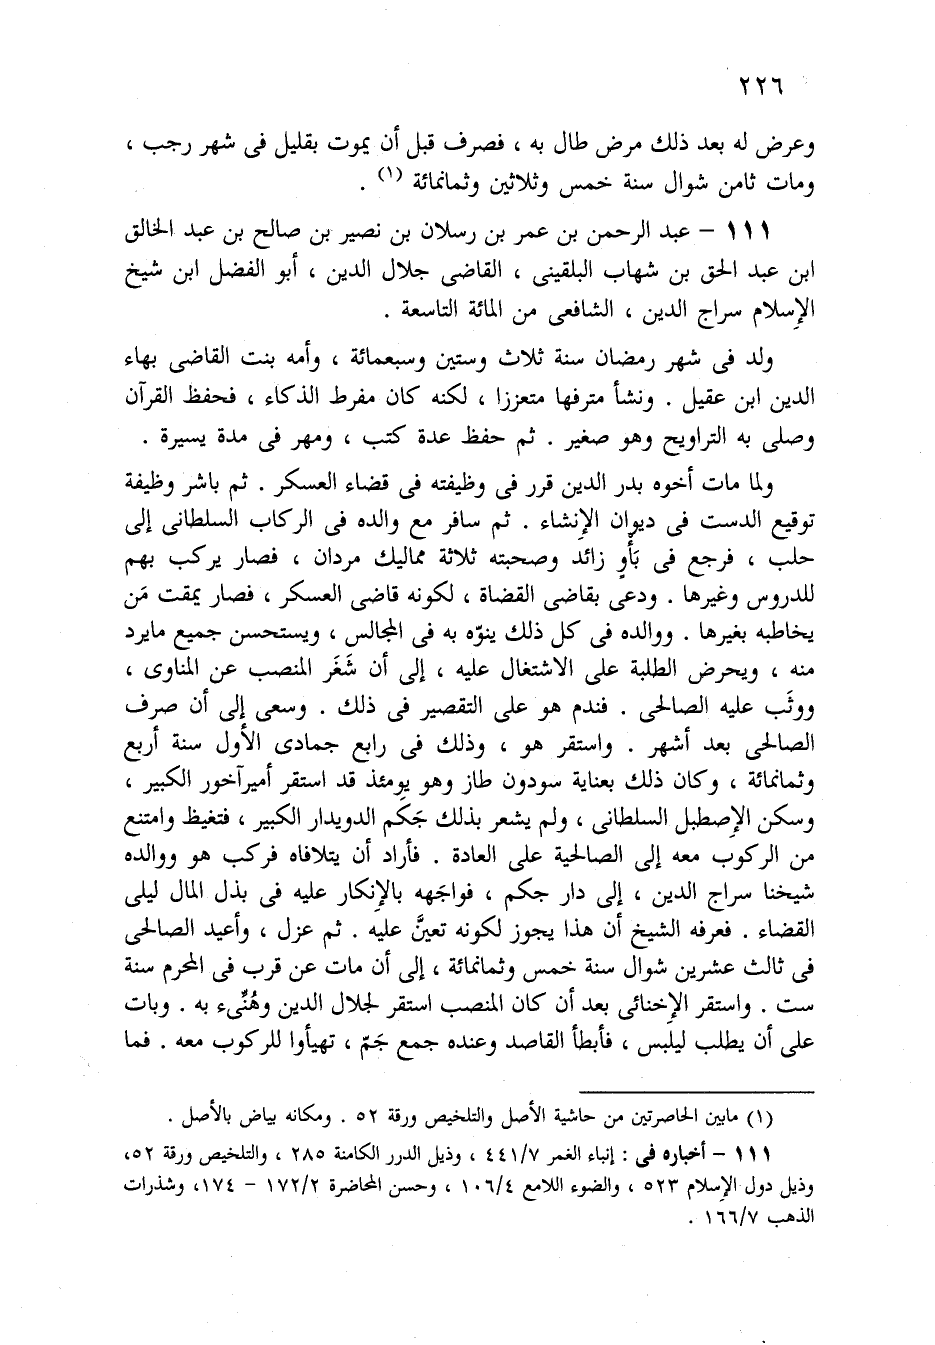 ٢٢٦
وعرض له بعد ذلك مرض طال به ، فصرف قبل أن يموت بقليل فى شهر رجب ،
ومات ثامن شوال سنة خمس وثلاثين وثمانمائة (١) .
١١١ – عبد الرحمن بن عمر بن رسلان بن نصير بن صالح بن عبد الخالق
ابن عبد الحق بن شهاب البلقينى ، القاضى جلال الدين ، أبو الفضل ابن شيخ
الإسلام سراج الدين ، الشافعى من المائة التاسعة .
ولد فى شهر رمضان سنة ثلاث وستين وسبعمائة ، وأمه بنت القاضى بهاء
الدين ابن عقيل . ونشأ مترفها متعززا ، لكنه كان مفرط الذكاء ، فحفظ القرآن
وصلى به التراويح وهو صغير . ثم حفظ عدة كتب ، ومهر فى مدة يسيرة .
ولما مات أخوه بدر الدين قرر فى وظيفته فى قضاء العسكر . ثم باشر وظيفة
توقيع الدست فى ديوان الإنشاء . ثم سافر مع والده فى الركاب السلطانى إلى
حلب ، فرجع فى بَأْوٍ زائد وصحبته ثلاثة مماليك مردان ، فصار يركب بهم
للدروس وغيرها . ودعى بقاضى القضاة ، لكونه قاضى العسكر ، فصار يمقت مَن
يخاطبه بغيرها . ووالده فى كل ذلك ينوّه به فى المجالس ، ويستحسن جميع مايرد
منه ، ويحرض الطلبة على الاشتغال عليه ، إلى أن شَغَر المنصب عن المناوى ،
ووثَب عليه الصالحى . فندم هو على التقصير فى ذلك . وسعى إلى أن صرف
الصالحى بعد أشهر . واستقر هو ، وذلك فى رابع جمادى الأول سنة أربع
وثمانمائة ، وكان ذلك بعناية سودون طاز وهو يومئذ قد استقر أميرآخور الكبير ،
وسكن الإصطبل السلطانى ، ولم يشعر بذلك جَكَم الدويدار الكبير ، فتغيظ وامتنع
من الركوب معه إلى الصالحية على العادة . فأراد أن يتلافاه فركب هو ووالده
شيخنا سراج الدين ، إلى دار جكم ، فواجَهه بالإنكار عليه فى بذل المال ليلى
القضاء . فعرفه الشيخ أن هذا يجوز لكونه تعينَّ عليه . ثم عزل ، وأعيد الصالحى
فى ثالث عشرين شوال سنة خمس وثمانمائة ، إلى أن مات عن قرب فى المحرم سنة
ست . واستقر الإخنائى بعد أن كان المنصب استقر لجلال الدين وهُنِّىء به . وبات
على أن يطلب ليلبس ، فأبطأ القاصد وعنده جمع جَمّ ، تهيأوا للركوب معه . فما
(١) مابين الحاصرتين من حاشية الأصل والتلخيص ورقة ٥٢ . ومكانه بياض بالأصل .
١١١ – أخباره فى : إنباء الغمر ٤٤١/٧ ، وذيل الدرر الكامنة ٢٨٥ ، والتلخيص ورقة ٥٢،
وذيل دول الإسلام ٥٢٣ ، والضوء اللامع ١٠٦/٤ ، وحسن المحاضرة ١٧٢/٢ – ١٧٤، وشذرات
الذهب ١٦٦/٧ .